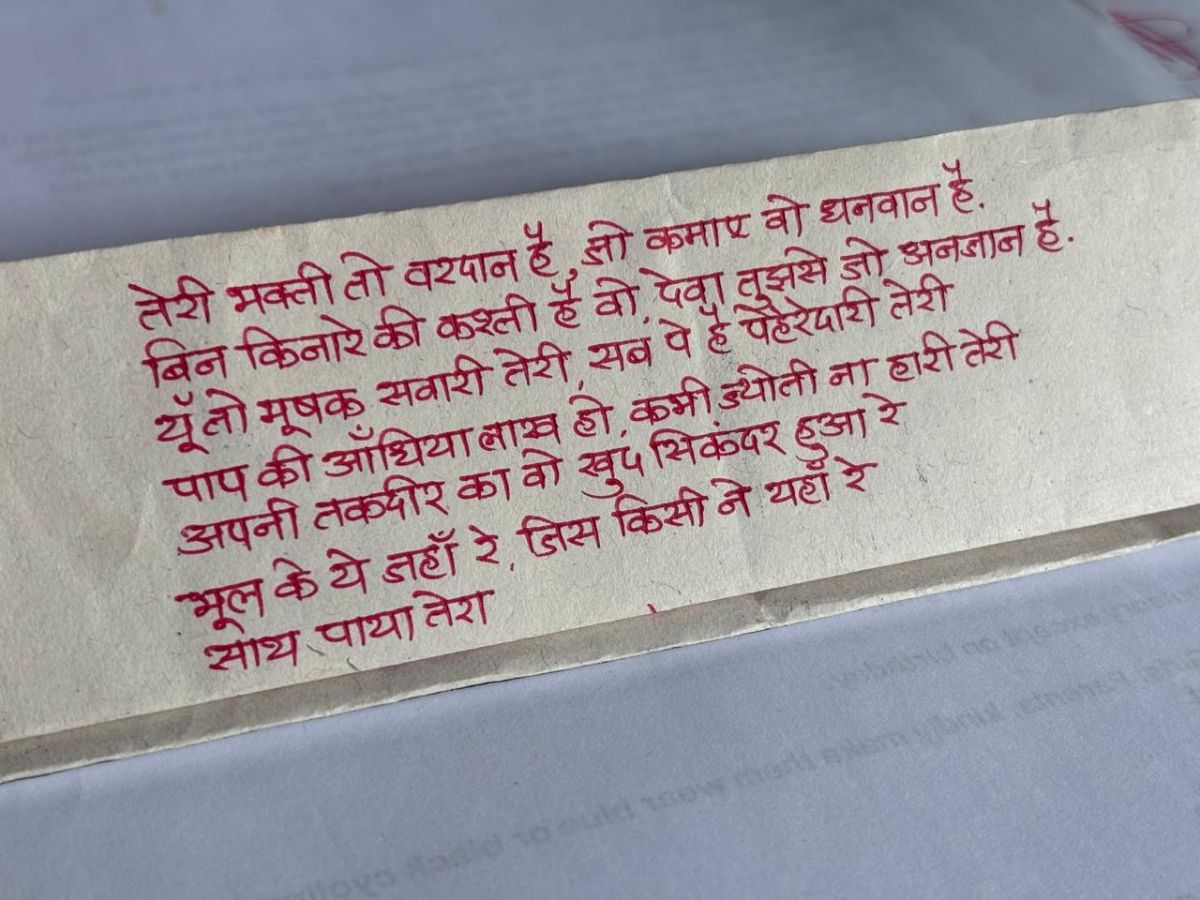 तेरी भक्ती तो वरदान है, जो कमाए वो धनवान है.
बिन किनारे की कश्ली है वो, देवा तुझसे जो अनजान है.
यूँ तो मूषक सवारी तेरी, सब पे है पेहरेदारी तेरी
पाप की आँधिया लाख हो, कभी ज्योती ना हारी तेरी
अपनी तकदीर का वो खुद सिकंदर हुआ रे
भूल के ये जहाँ रे, जिस किसी ने यहाँ रे
साथ पाया तेरा